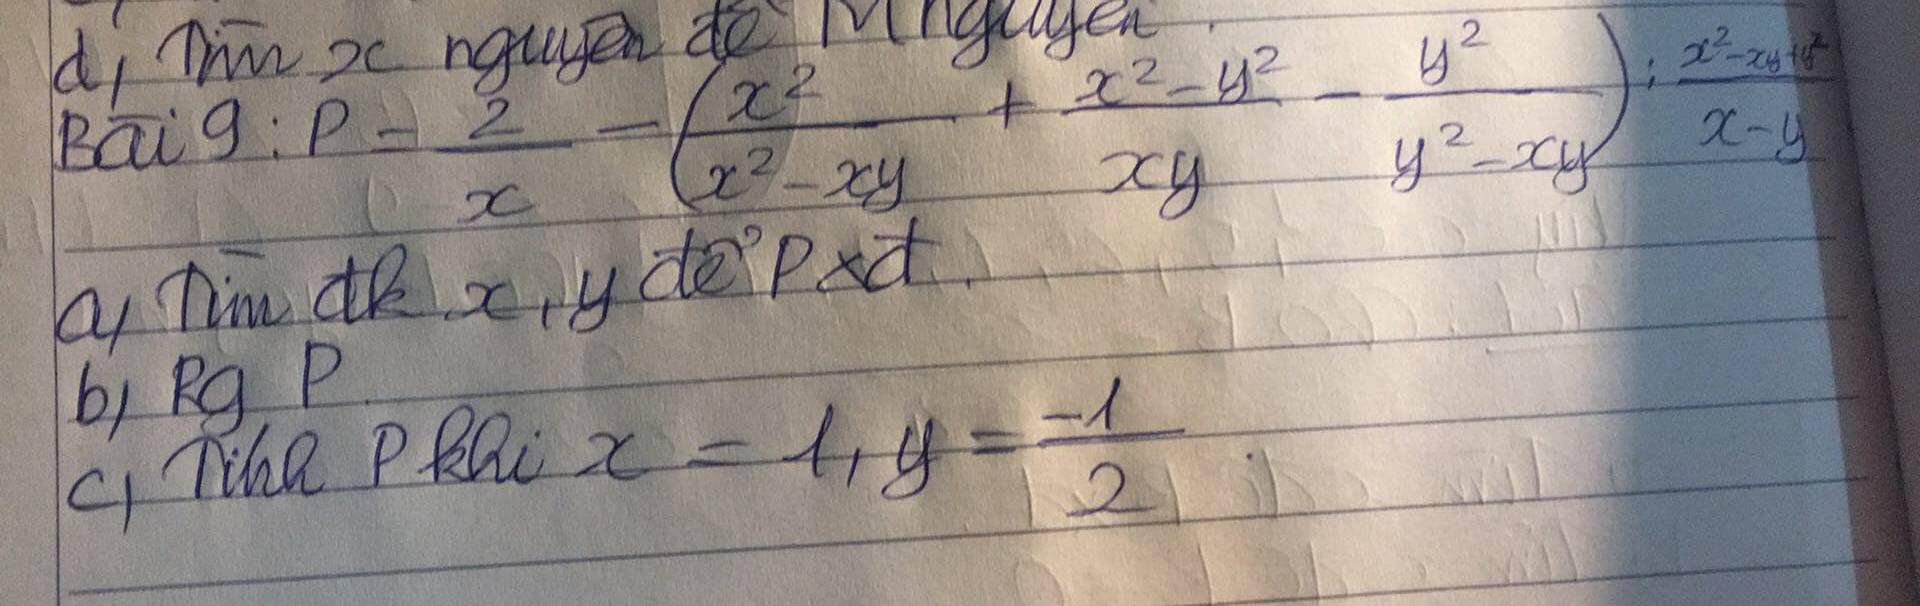 d, Tìm x nguyên để M nguyên.
Bài 9: P = 2/x - (x²/(x² - xy) + (x² - y²)/xy - y²/(y² - xy)) : (x² - xy + y²)/(x - y)
a, Tìm đk x, y để P xđ.
b, Rg P.
c, Tính P khi x = 1, y = -1/2